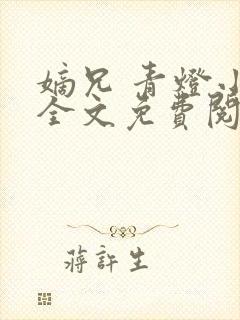 嫡兄 青燈
全文免費閱
蔣許生